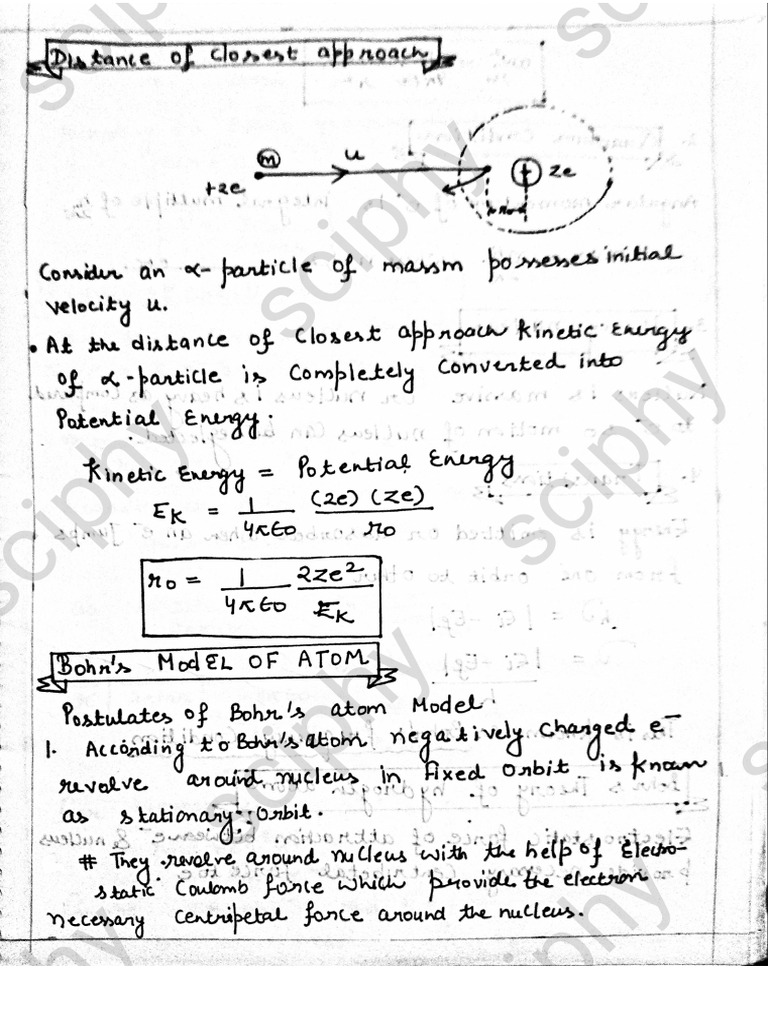 Distance of Closest approach
m
u
+2e
Ze
r0
Consider an α-particle of mass m possesses initial
velocity u.
• At the distance of Closest approach Kinetic Energy
of α-particle is Completely Converted into
Potential Energy.
Kinetic Energy = Potential Energy
EK = 1/4πε0 (2e)(Ze)/r0
r0 = 1/4πε0 2Ze²/EK
Bohr's Model OF ATOM
Postulates of Bohr's atom Model.
1. According to Bohr's atom negatively Charged e⁻
revolve around nucleus in fixed Orbit is known
as stationary Orbit.
# They revolve around nucleus with the help of Electro-
static Coulomb force which provide the electron
necessary Centripetal force around the nucleus.
sciphy
sciphy
sciphy
sciphy
sciphy
sciphy
sciphy